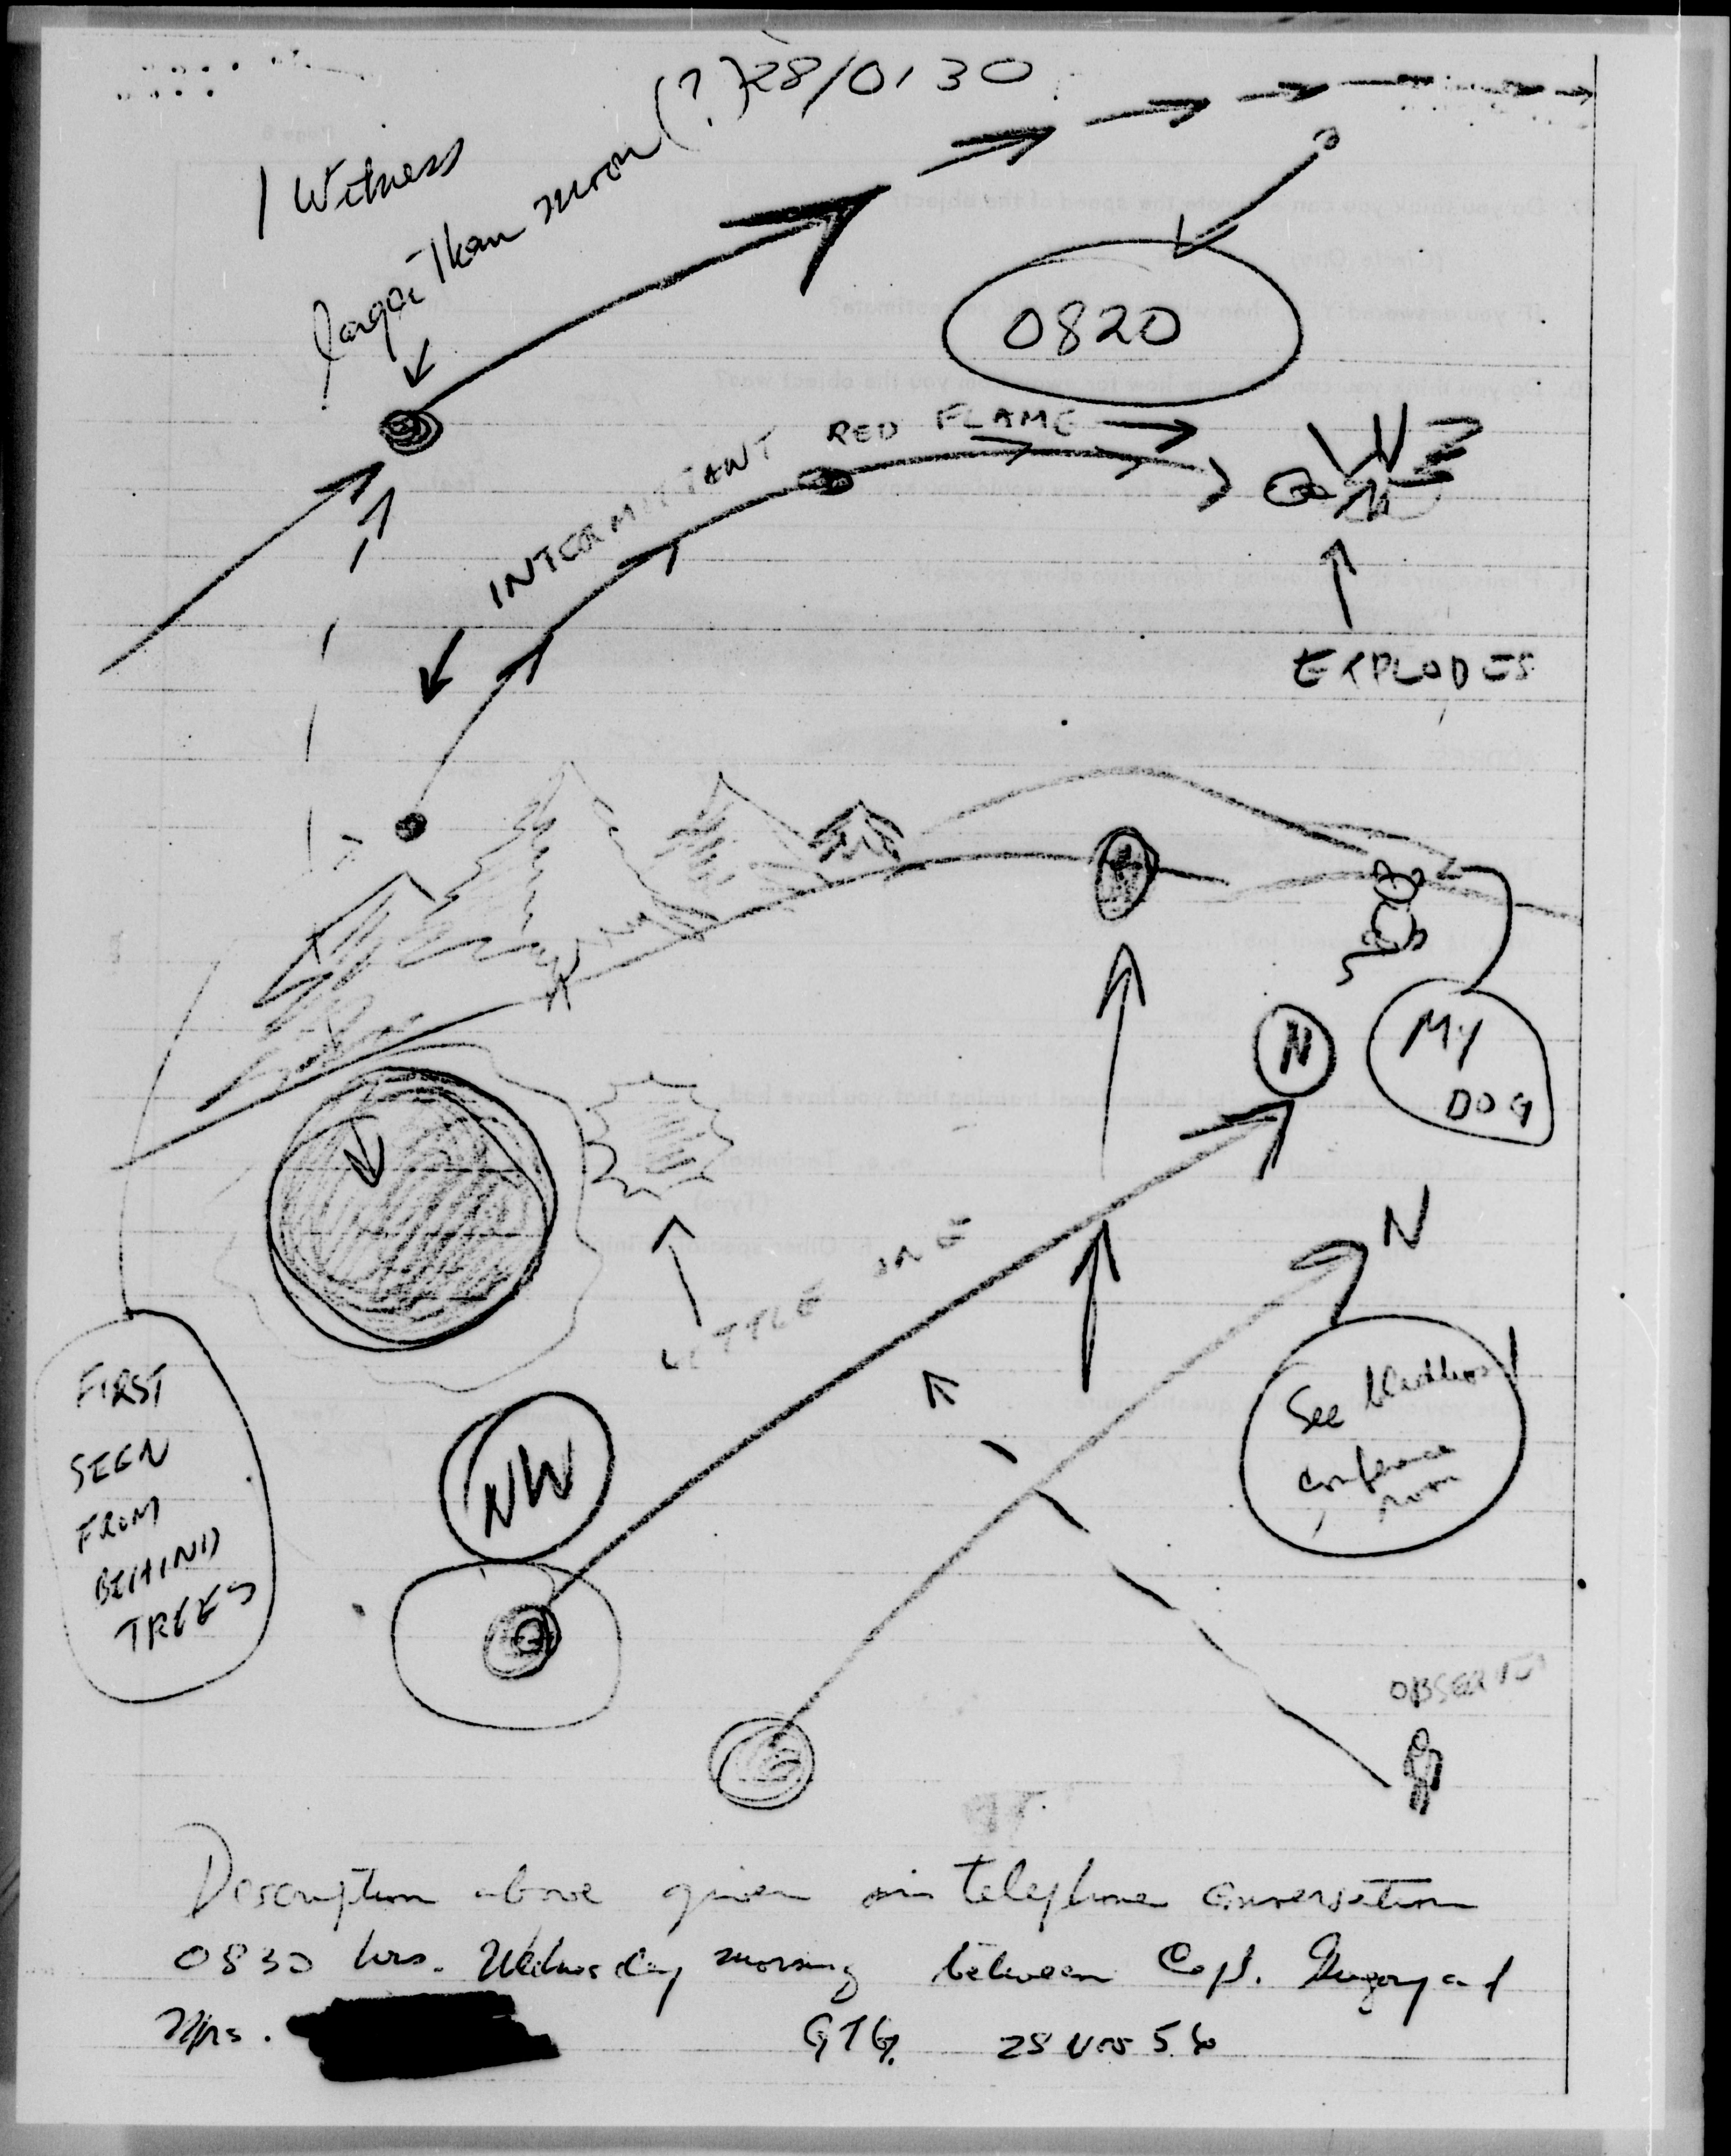 (?) 28/0130
1 Witness
larger Than moon
0820
INTERMITTANT RED FLAME
EXPLODES
MY
DOG
N
N
LITTLE ONE
FIRST
SEEN
FROM
BEHIND
TREES
NW
See
conference
room
Description above given in telephone conversation
0830 hrs. Wednesday morning between Capt. Gregory and
Mrs.
GTG. 28 Nov 56